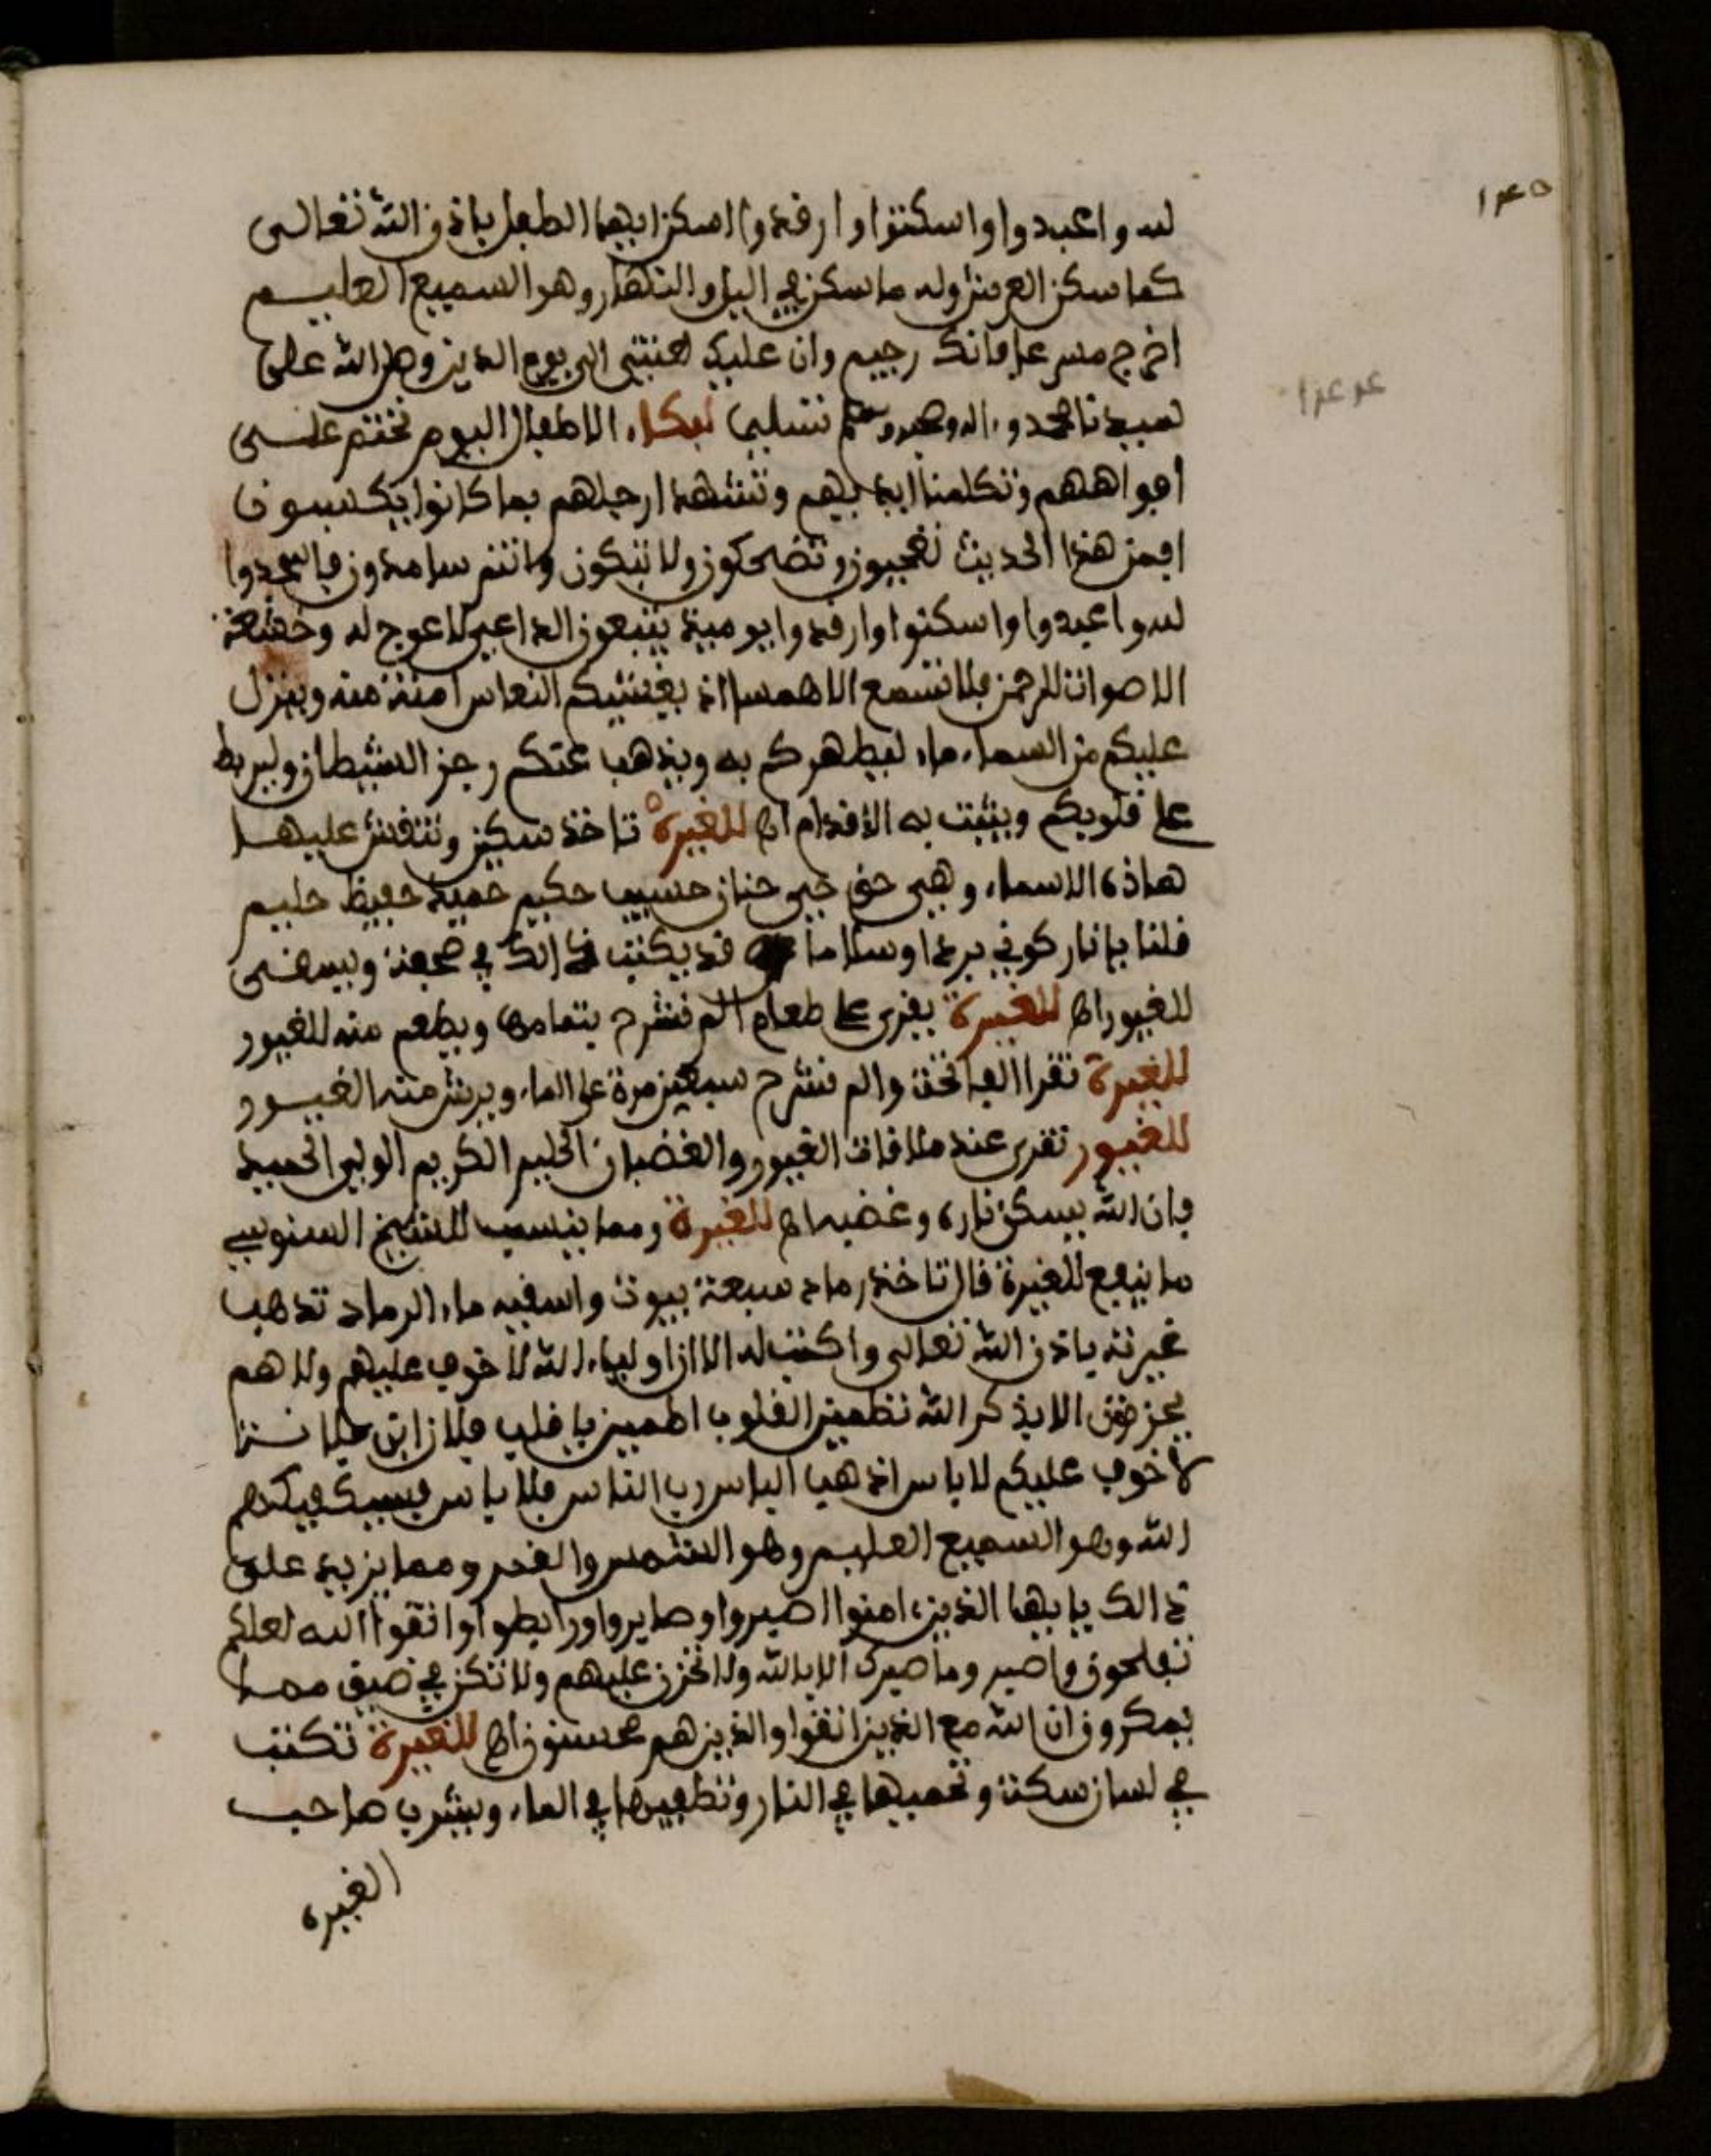 ١٤٥
لله واعبدوا واسكنوا وارقدوا اسكن ايها الطفل باذن الله تعالى
كما سكن العرش وله ما سكن في اليل والنهار وهو السميع العليم
اخرج فانك رجيم وان عليك لعنتي الى يوم الدين وصلى الله على
سيدنا محمد وءاله وصحبه وسلم تسليما لبكاء الاطفال اليوم نختم على
افواههم وتكلمنا ايديهم وتشهد ارجلهم بما كانوا يكسبون
افمن هذا الحديث تعجبون وتضحكون ولا تبكون وانتم سامدون فاسجدوا
لله واعبدوا واسكنوا وارقدوا يوميذ يتبعون الداعي لا عوج له وخشعت
الاصوات للرحمن فلا تسمع الا همسا اذ يغشيكم النعاس امنة منه وينزل
عليكم من السماء ماء ليطهركم به ويذهب عنكم رجز الشيطان وليربط
على قلوبكم ويثبت به الاقدام اه للغيرة تاخذ سكين وتنقش عليها
هاذه الاسماء وهي حق حي حنان حسيب حكيم حميد حفيظ حليم
قلنا يا نار كوني بردا وسلاما قد يكتب ذالك في صحفة ويسقى
للغيور اه للغيرة يقرى على طعام الم نشرح بتمامها ويطعم منه للغيور
للغيرة تقرا الفاتحة والم نشرح سبعين مرة على الماء ويرش منه الغيور
للغيور تقرى عند ملاقات الغيور والغضبان الحليم الكريم الولي الحميد
فان الله يسكن ناره وغضبه اه للغيرة ومما ينسب للشيخ السنوسي
ما ينفع للغيرة قال تاخذ رماد سبعة بيوت واسقيه ماء الرماد تذهب
غيرته باذن الله تعالى واكتب له الا ان اولياء الله لا خوف عليهم ولا هم
يحزنون الا بذكر الله تطمين القلوب اطمين يا قلب فلان ابن فلانة
لا خوف عليكم لا باس اذهب الباس رب الناس فلا باس فسيكفيكهم
الله وهو السميع العليم وهو الشمس والقمر ومما يزيد على
ذالك يا ايها الذين ءامنوا اصبروا وصابروا ورابطوا واتقوا الله لعلكم
تفلحون واصبر وما صبرك الا بالله ولا تحزن عليهم ولا تكن في ضيق مما
يمكرون ان الله مع الذين اتقوا والذين هم محسنون اه للغيرة تكتب
في لسان سكة وتحميها في النار وتطفيها في الماء ويشرب صاحب
الغيرة